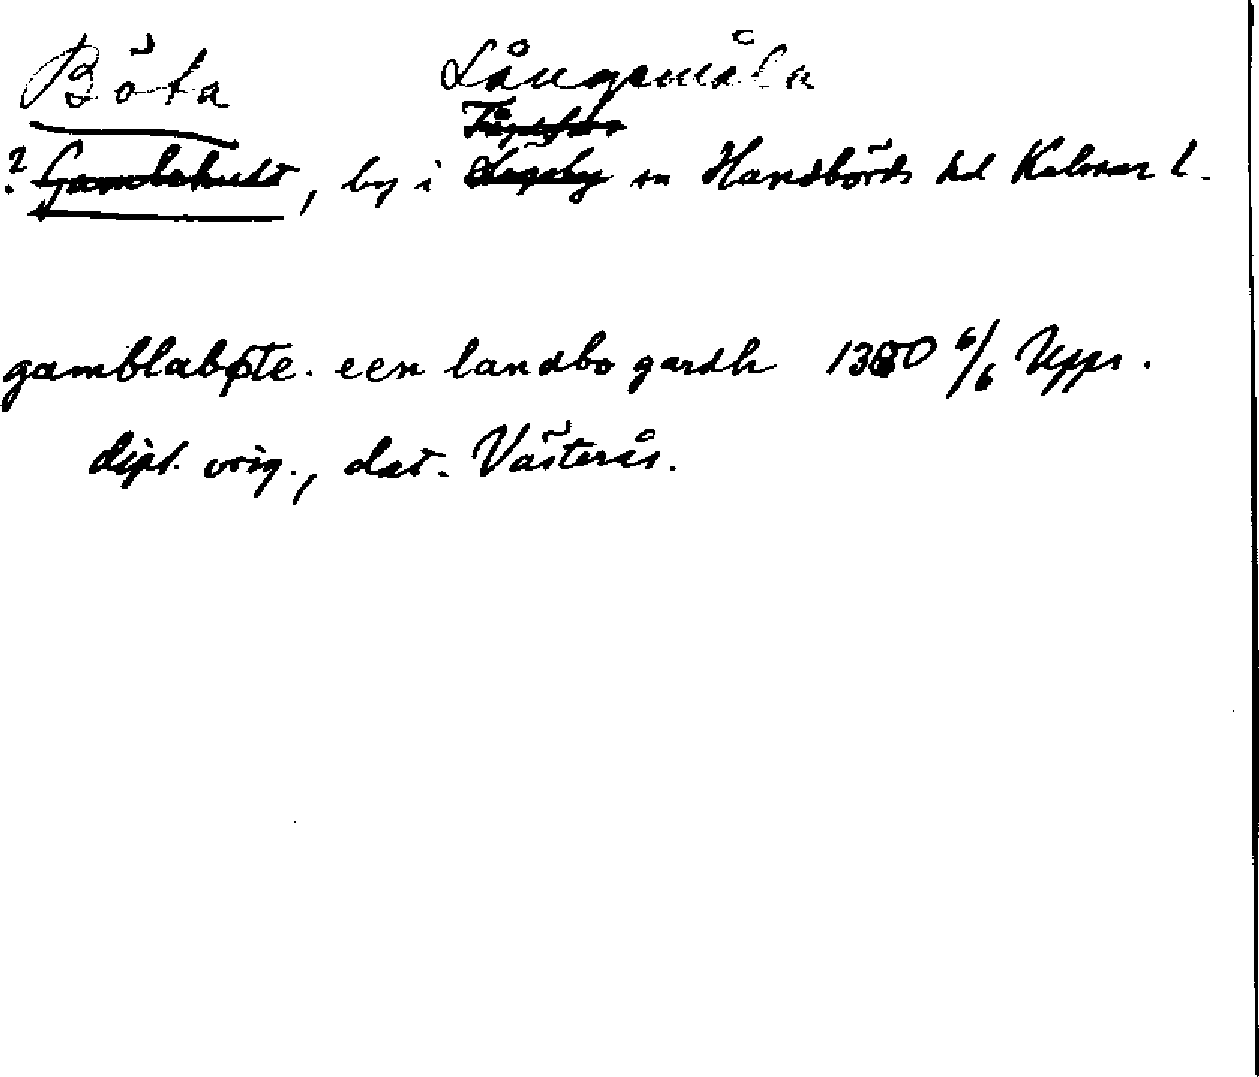 Böta Långemåla
? Gamblehult, by i sn Handbörds hd Kalmar l.
gamblabøte. een landbo gardh 1380 6/6 Upps.
dipl. orig., dat. Västerås.